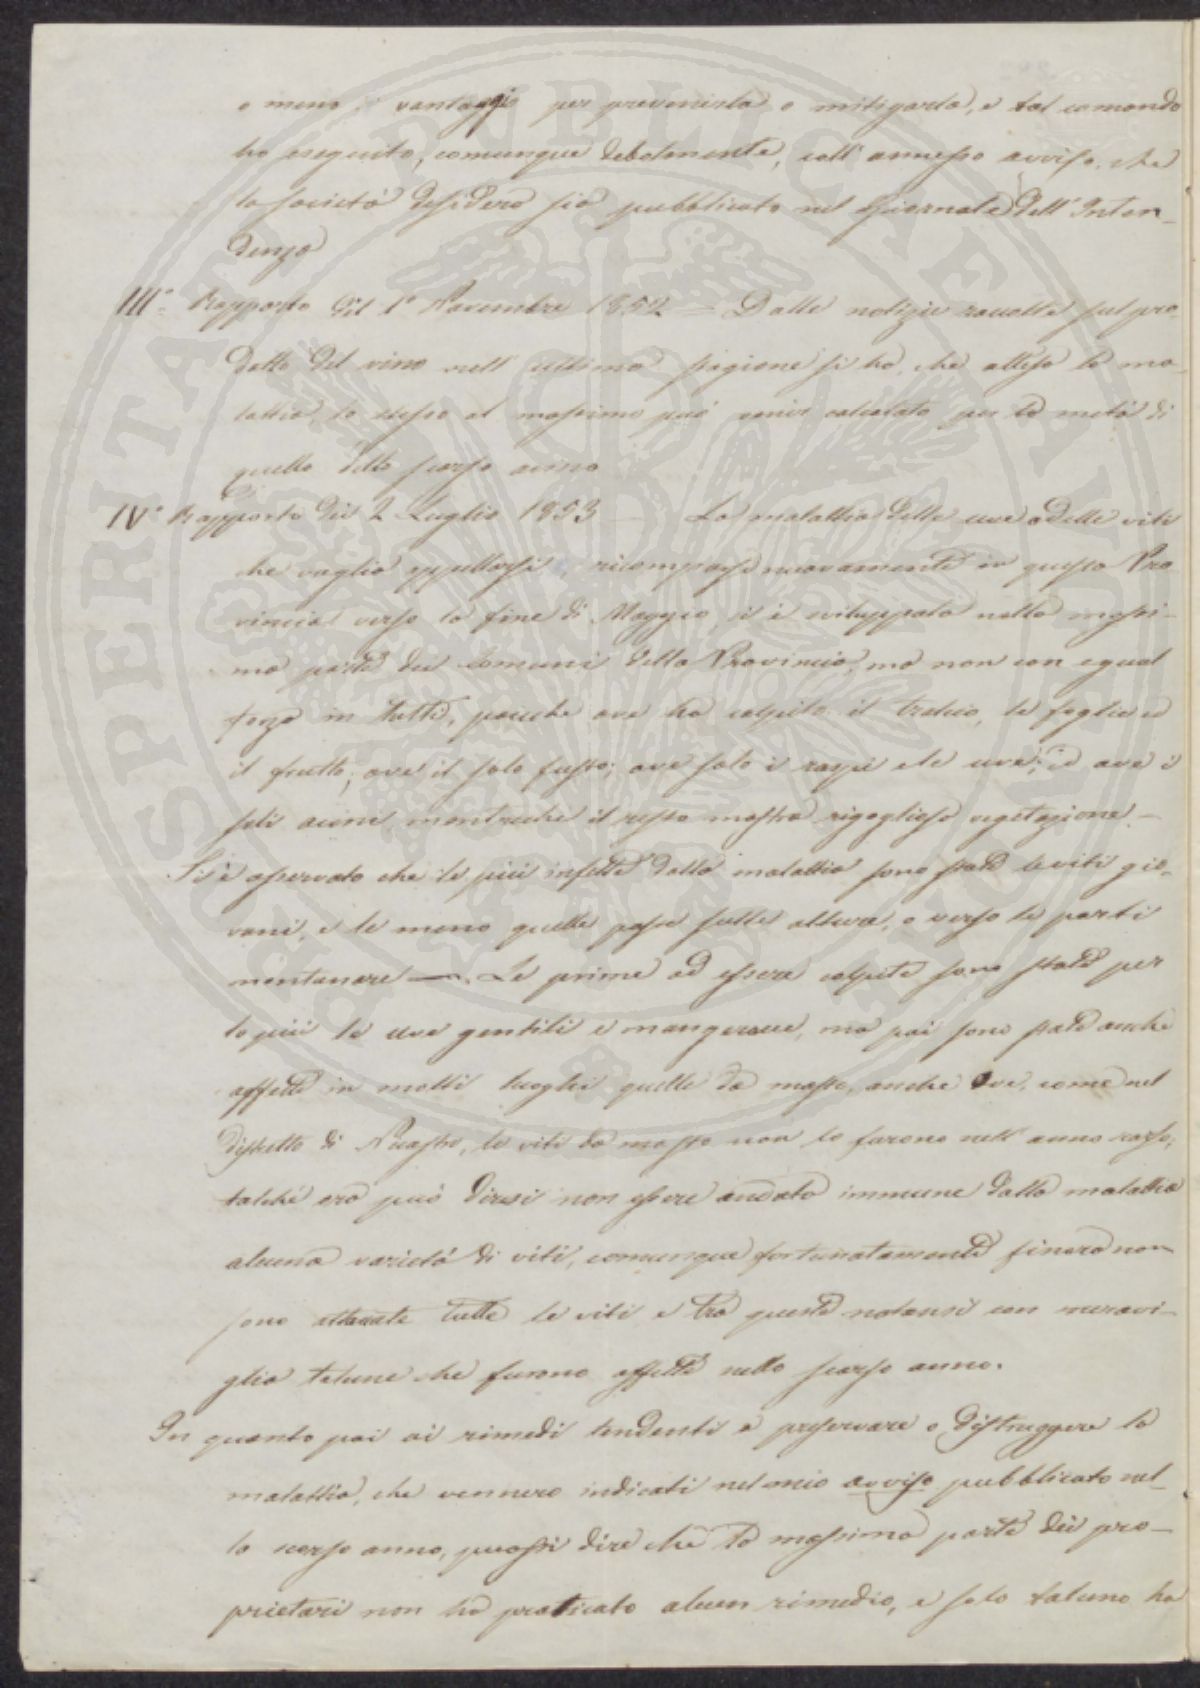 o meno i vantaggi per prevenirla o mitigarla, e tal comando
ho eseguito, comunque debolmente, coll' annesso avviso, che
la Società desidera sia pubblicato nel Giornale dell' Inten-
denza
III.° Rapporto del 1° Novembre 1852 = Dalle notizie raccolte sul pro-
dotto del vino nell' ultima stagione si ha, che atteso la ma-
lattia, lo stesso al massimo può venir calcolato per la metà di
quello dello scorso anno
IV.° Rapporto dei 2 Luglio 1853 — La malattia delle uve o delle viti
che voglia appellarsi, ricomparse nuovamente in questa Pro
vincia verso la fine di Maggio, si è sviluppata nella massi-
ma parte dei Comuni della Provincia, ma non con egual
forza in tutti, poicchè ove ha colpito il tralcio, le foglie ed
il frutto; ove il solo fusto; ove solo i raspi e le uve; ed ove i
soli acini, mentrechè il resto mostra rigogliosa vegetazione. —
Si è osservato che le più infette dalla malattia sono state le viti gio-
vani, e le meno quelle poste sulle alture, o verso le parti
montanare —. Le prime ad essere colpite sono state per
lo più le uve gentili e mangerecce, ma poi sono state anche
affette in molti luoghi quelle da mosto, anche ove, come nel
Distretto di Nicastro, le viti da mosto non lo furono nell' anno scorso,
talchè ora può dirsi non essere andata immune dalla malattia
alcuna varietà di viti, comunque fortunatamente finora non
sono attaccate tutte le viti e tra queste notansi con maravi-
glia talune che furono affette nello scorso anno.
In quanto poi ai rimedi tendenti a preservare o distruggere la
malattia, che vennero indicati nel mio avviso pubblicato nel-
lo scorso anno, puossi dire che la massima parte dei pro-
prietari non ha praticato alcun rimedio, e solo taluno ha
PROSPERITATI PUBLICAE AUGENDAE